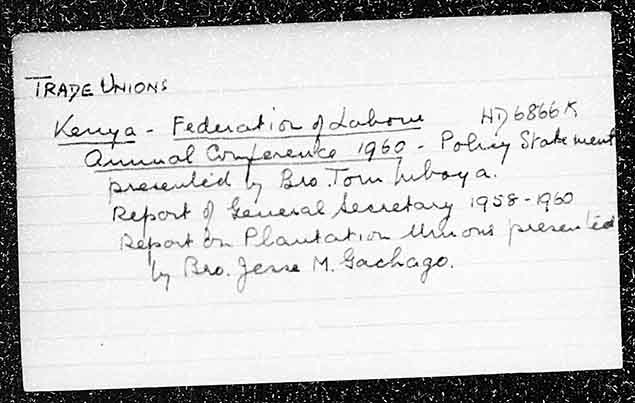 TRADE UNIONS
Kenya - Federation of Labour HD6866K
Annual Conference 1960 - Policy Statement
presented by Bro. Tom Mboya.
Report of General Secretary 1958-1960
Report on Plantation Unions presented
by Bro. Jesse M. Gachago.